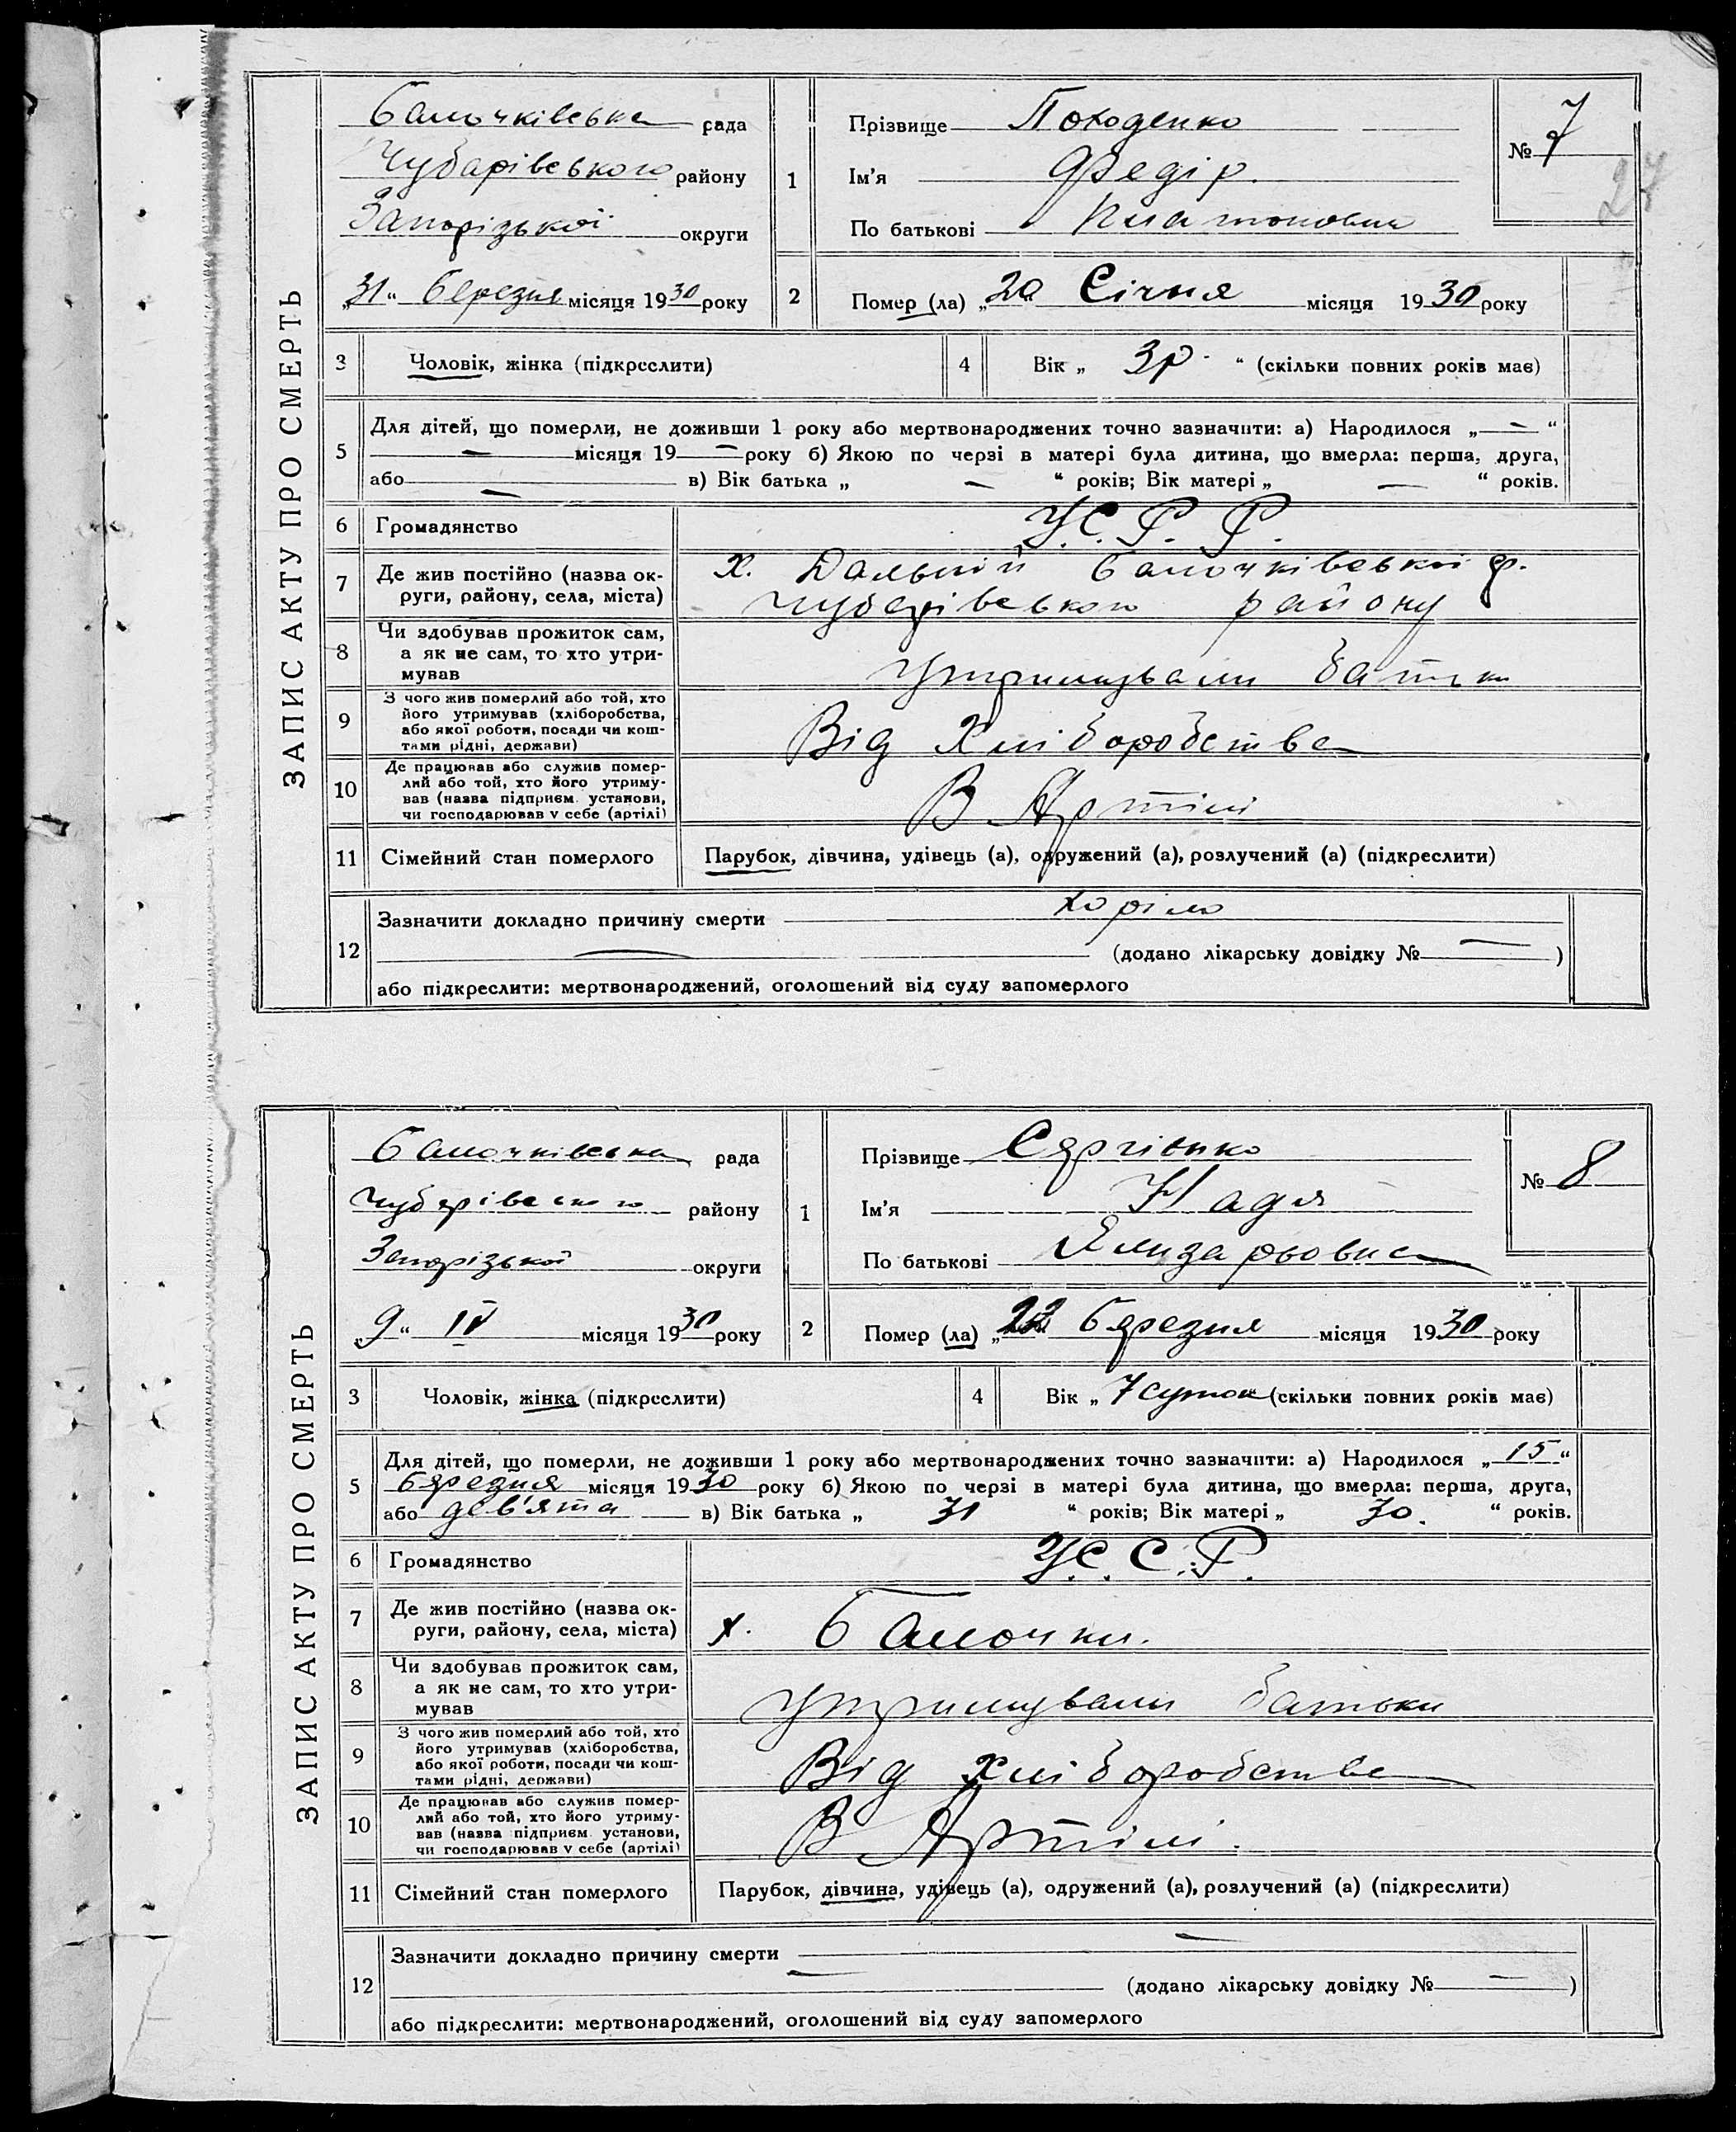 ЗАПИС АКТУ ПРО СМЕРТЬ
Балочківська рада
Чубарівського району
Запорізької округи
„31“ березня місяця 1930 року
1
Прізвище Походенко
Ім'я Федір.
По батькові Платонович
№ 7
27
2
Помер (ла) „20 Січня місяця 1930 року
3 Чоловік, жінка (підкреслити)
4 Вік „ 3 р. “ (скільки повних років має)
5
Для дітей, що померли, не доживши 1 року або мертвонароджених точно зазначити: а) Народилося „—“
— місяця 19— року б) Якою по черзі в матері була дитина, що вмерла: перша, друга,
або — в) Вік батька „ — “ років; Вік матері „ — “ років.
6 Громадянство У.С.Р.Р.
7 Де жив постійно (назва ок-
руги, району, села, міста)
х. Дальній Балочківської р.
Чубарівського району
8 Чи здобував прожиток сам,
а як не сам, то хто утри-
мував
Утримували батьки
9 З чого жив померлий або той, хто
його утримував (хліборобства,
або якої роботи, посади чи кош-
тами рідні, держави)
Від Хліборобства
10 Де працював або служив помер-
лий або той, хто його утриму-
вав (назва підприєм. установи,
чи господарював у себе (артілі)
В Артілі
11 Сімейний стан померлого Парубок, дівчина, удівець (а), одружений (а), розлучений (а) (підкреслити)
12
Зазначити докладно причину смерти хоріло
— (додано лікарську довідку № — )
або підкреслити: мертвонароджений, оголошений від суду запомерлого
ЗАПИС АКТУ ПРО СМЕРТЬ
Балочківська рада
Чубарівського району
Запорізької округи
„9“ IV місяця 1930 року
1
Прізвище Сяргієнко
Ім'я Надя
По батькові Елизаровна
№ 8
2
Помер (ла) „22 бярезня місяця 1930 року
3 Чоловік, жінка (підкреслити)
4 Вік „ 7 суток (скільки повних років має)
5
Для дітей, що померли, не доживши 1 року або мертвонароджених точно зазначити: а) Народилося „15“
бярезня місяця 1930 року б) Якою по черзі в матері була дитина, що вмерла: перша, друга,
або дев'ята в) Вік батька „ 31 “ років; Вік матері „ 30. “ років.
6 Громадянство У.С.С.Р.
7 Де жив постійно (назва ок-
руги, району, села, міста)
х. Балочки.
8 Чи здобував прожиток сам,
а як не сам, то хто утри-
мував
Утримували батьки
9 З чого жив померлий або той, хто
його утримував (хліборобства,
або якої роботи, посади чи кош-
тами рідні, держави)
Від Хліборобства
10 Де працював або служив помер-
лий або той, хто його утриму-
вав (назва підприєм. установи,
чи господарював у себе (артілі)
В Артілі.
11 Сімейний стан померлого Парубок, дівчина, удівець (а), одружений (а), розлучений (а) (підкреслити)
12
Зазначити докладно причину смерти —
— (додано лікарську довідку № — )
або підкреслити: мертвонароджений, оголошений від суду запомерлого